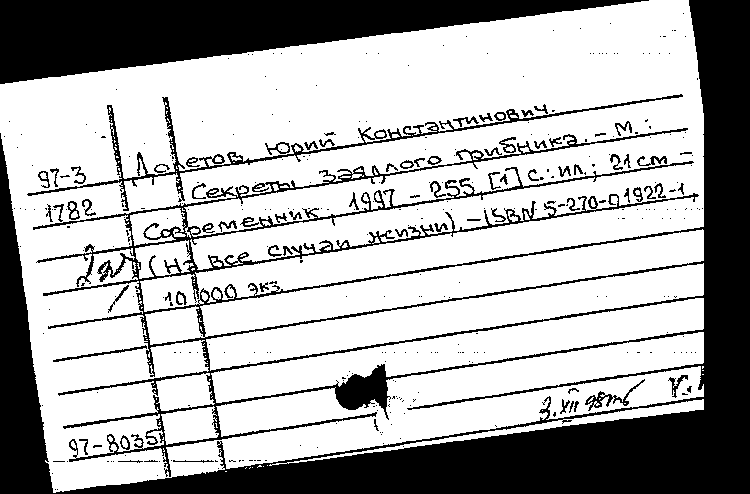 97-3 Долетов, Юрий Константинович.
1782 Секреты заядлого грибника. – М.:
Современник, 1997 – 255, [1] с.: ил.; 21 см –
(На все случаи жизни). – ISBN 5-270-01922-1,
10 000 экз.
3.XII 98
97-8035